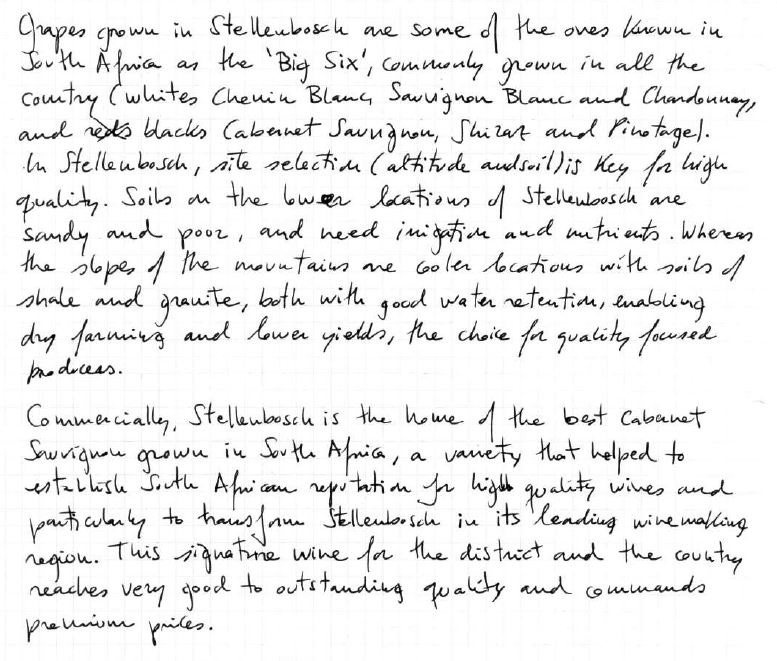 Grapes grown in Stellenbosch are some of the ones known in
South Africa as the 'Big Six', commonly grown in all the
country (whites Chenin Blanc, Sauvignon Blanc and Chardonnay,
and reds blacks Cabernet Sauvignon, Shiraz and Pinotage).
In Stellenbosch, site selection (altitude and soil) is key for high
quality. Soils on the lower locations of Stellenbosch are
sandy and poor, and need irrigation and nutrients. Whereas
the slopes of the mountains are cooler locations with soils of
shale and granite, both with good water retention, enabling
dry farming and lower yields, the choice for quality focused
producers.
Commercially, Stellenbosch is the home of the best Cabernet
Sauvignon grown in South Africa, a variety that helped to
establish South African reputation for high quality wines and
particularly to transform Stellenbosch in its leading winemaking
region. This signature wine for the district and the country
reaches very good to outstanding quality and commands
premium prices.